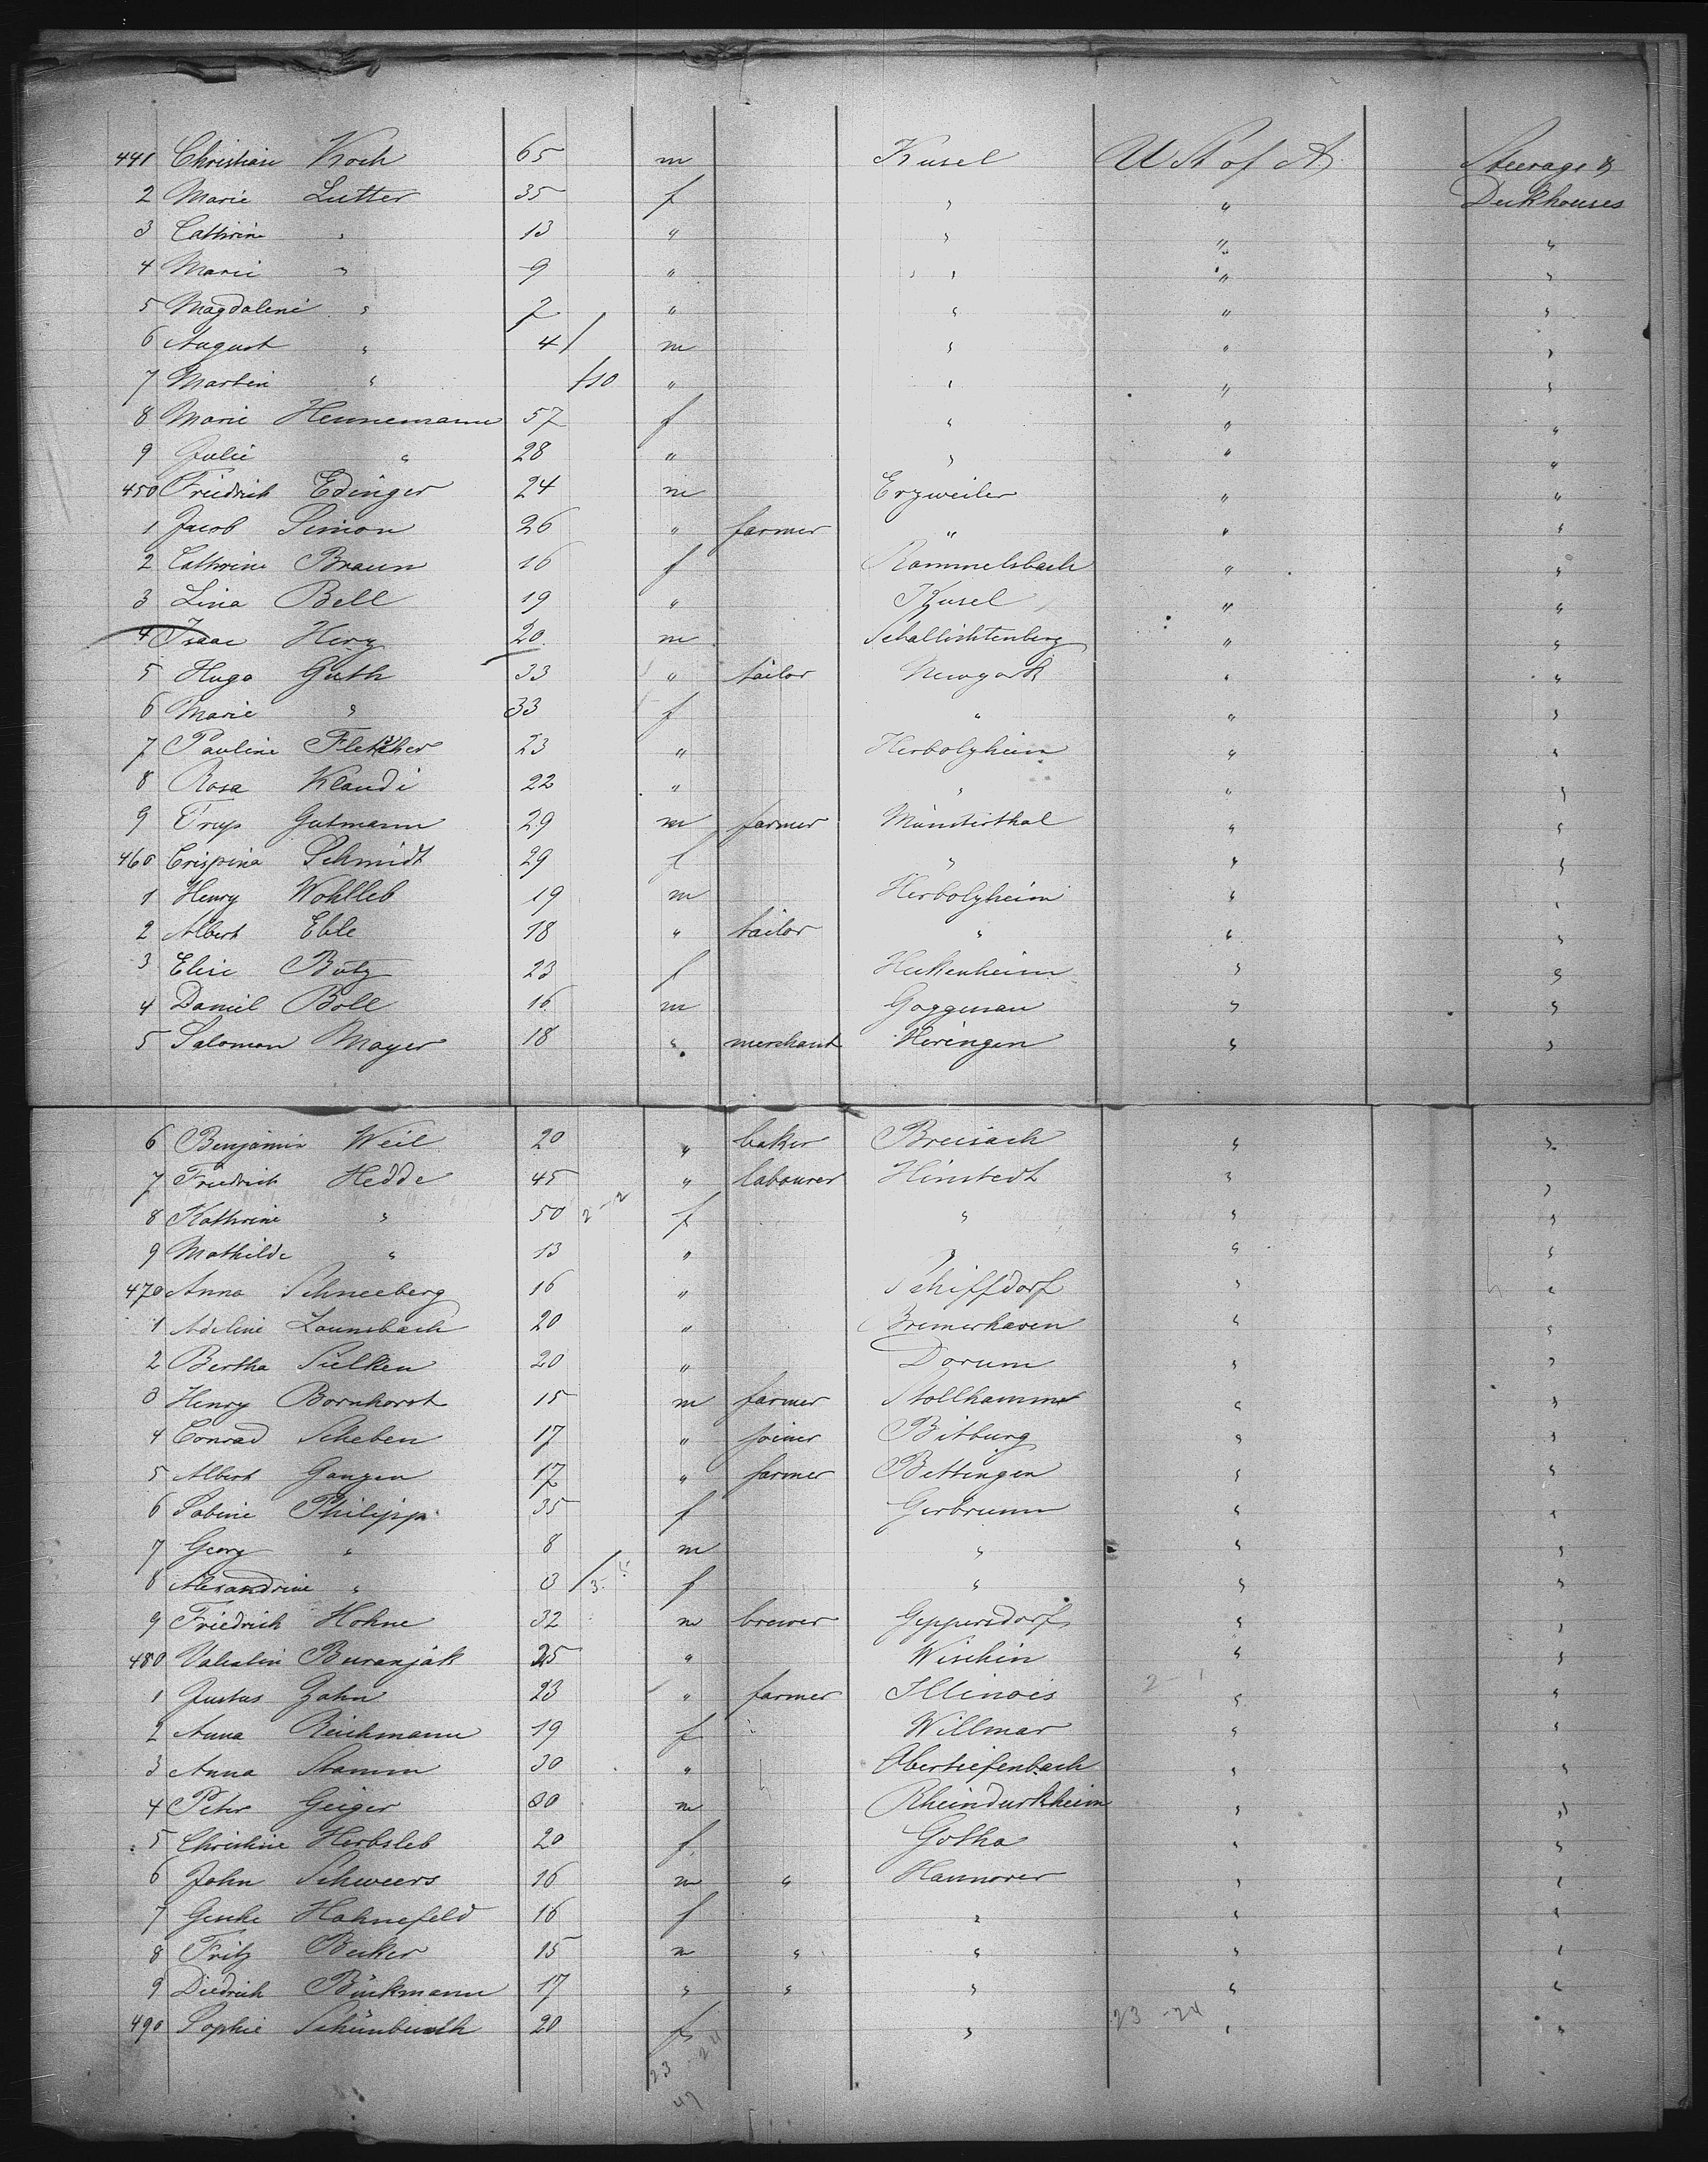 441 Christian Koch 65 m Kusel U St of A. Steerage &
2 Marie Lutter 35 f " " Deckhouses
3 Cathrine " 13 " " " "
4 Marie " 9 " " " "
5 Magdalene " 7 " " " "
6 August " 4 / m " " "
7 Martin " /10 " " " "
8 Marie Hennemann 57 f " " "
9 Julie " 28 " " " "
450 Friedrich Edinger 24 m Erzweiler " "
1 Jacob Simon 26 " farmer " " "
2 Cathrine Braun 16 f Rammelsbach " "
3 Lina Bell 19 " Kusel " "
4 Isaac Herz 20 m Schallichtenberg " "
5 Hugo Guth 33 " tailor Newyork " "
6 Marie " 33 f " " "
7 Pauline Fletscher 23 " Herbolzheim " "
8 Rosa Klandi 22 " " " "
9 Gutmann 29 m farmer Münsterthal " "
460 Crispina Schmidt 29 f " " "
1 Henry Wohlleb 19 m Herbolzheim " "
2 Albert Eble 18 " tailor " " "
3 Elise Butz 23 f Heckenheim " "
4 Daniel Boll 16 m Gaggenau " "
5 Salomon Mayer 18 " merchant Heringen " "
6 Benjamin Weil 20 " baker Breisach " "
7 Friedrich Hedde 45 " labourer Himstedt " "
8 Kathrine " 50 2-2 f " " "
9 Mathilde " 13 " " " "
470 Anna Schneeberg 16 " Schiffdorf " "
1 Adeline Launsbach 20 " Bremerhaven " "
2 Bertha Sielken 20 " Dorum " "
3 Henry Bornhorst 15 m farmer Stollhamm " "
4 Conrad Scheben 17 " joiner Bitburg " "
5 Albert Ganzen 17 " farmer Bettingen " "
6 Sabine Philipp 35 f Gerbrunn " "
7 Georg " 8 m " " "
8 Alexandrine " 3 / 3 f " " "
9 Friedrich Hohne 32 m brewer Geppersdorf " "
480 Valentin Buranjak 25 " Wischin " "
1 Justus Zahn 23 " farmer Illinois 2-1 " "
2 Anna Reichmann 19 f Willmar " "
3 Anna Stamm 30 " Obertiefenbach " "
4 Peter Geiger 30 m Rheindurkheim " "
5 Christine Herbsleb 20 f Gotha " "
6 John Schweers 16 m " Hannover " "
7 Gesche Hahnefeld 16 f " " "
8 Fritz Becker 15 m " " " "
9 Diedrich Bückmann 17 " " " " "
490 Sophie 20 f " 23-24 " "
23-24
47